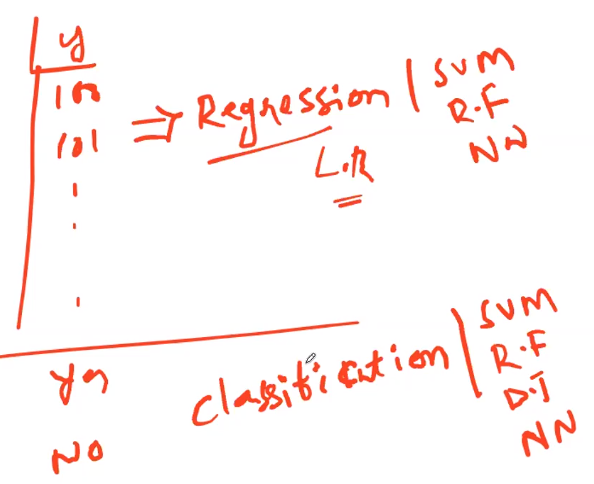 y
100
101
⇒ Regression
L.R
SVM
R.F
NN
Yes
NO
Classification
SVM
R.F
D.T
NN